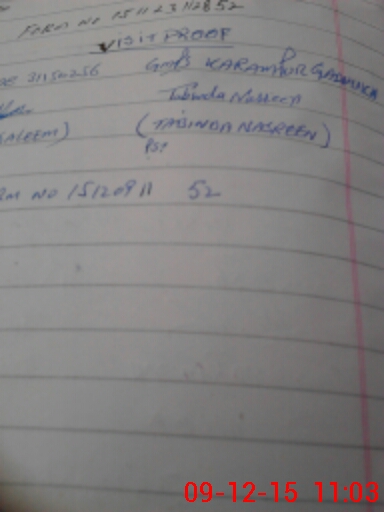 FORM NO 151123112852
VISIT PROOF
31150256 GMPS KARAMPUR
Tabinda Nasreen
SALEEM) (TABINDA NASREEN)
PST
RM NO 15120911 52
09-12-15 11:03